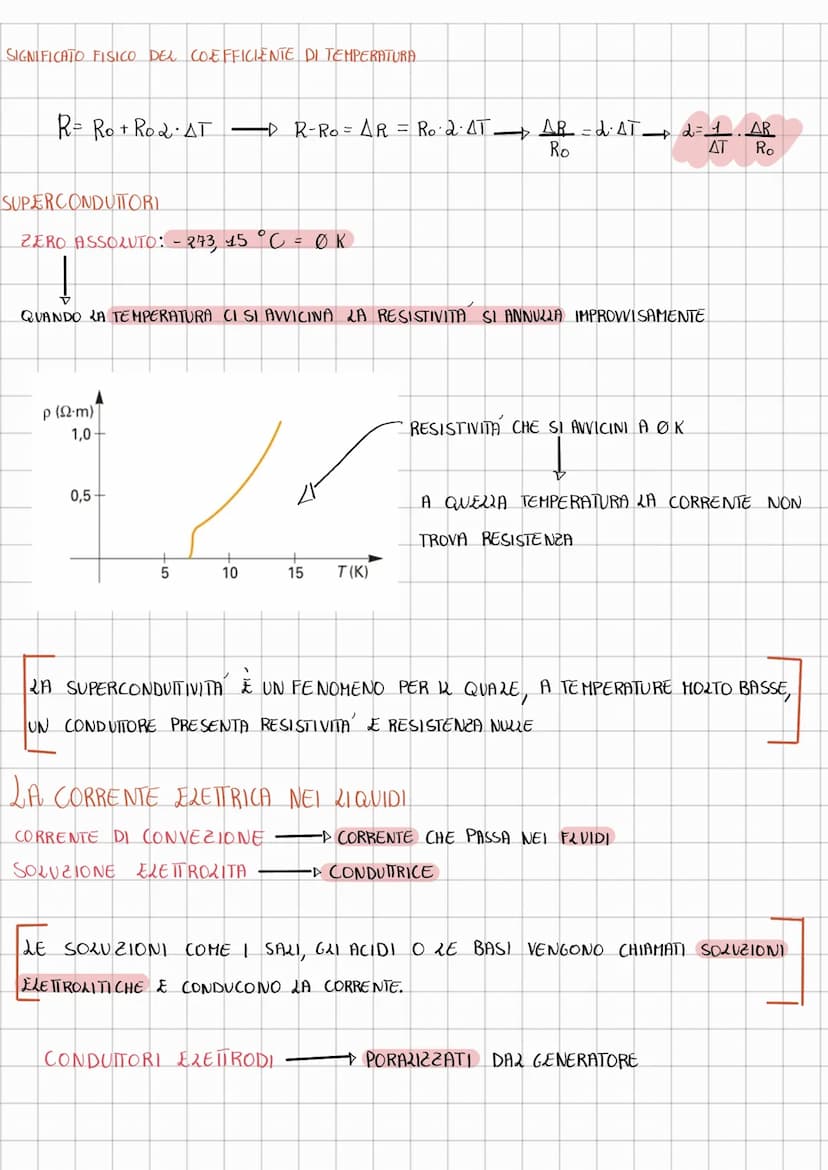 SIGNIFICATO FISICO DEL COEFFICIENTE DI TEMPERATURA
R = R₀ + R₀α·ΔT → R-R₀ = ΔR = R₀·α·ΔT → ΔR/R₀ = α·ΔT → α = 1/ΔT · ΔR/R₀
SUPERCONDUTTORI
ZERO ASSOLUTO: - 273,15 °C = 0 K
QUANDO LA TEMPERATURA CI SI AVVICINA LA RESISTIVITÀ SI ANNULLA IMPROVVISAMENTE
ρ (Ω·m)
1,0
0,5
5 10 15 T (K)
RESISTIVITÀ CHE SI AVVICINI A 0 K
A QUELLA TEMPERATURA LA CORRENTE NON
TROVA RESISTENZA
LA SUPERCONDUTTIVITÀ È UN FENOMENO PER IL QUALE, A TEMPERATURE MOLTO BASSE,
UN CONDUTTORE PRESENTA RESISTIVITÀ E RESISTENZA NULLE
LA CORRENTE ELETTRICA NEI LIQUIDI
CORRENTE DI CONVEZIONE → CORRENTE CHE PASSA NEI FLUIDI
SOLUZIONE ELETTROLITA → CONDUTTRICE
LE SOLUZIONI COME I SALI, GLI ACIDI O LE BASI VENGONO CHIAMATI SOLUZIONI
ELETTROLITICHE E CONDUCONO LA CORRENTE.
CONDUTTORI ELETTRODI → PORALIZZATI DAL GENERATORE